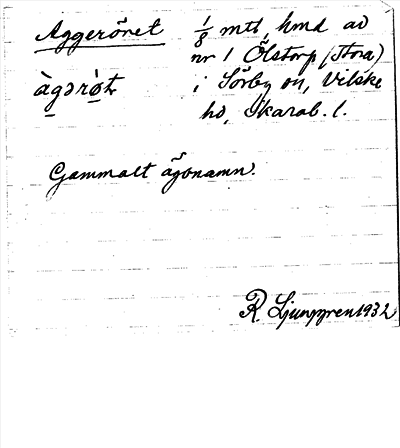 Aggeröret 1/8 mtl, hmd av
nr 1 Ölstorp (Stora)
àgərø̀t i Sörby sn, Vilske
hd, Skarab. l.
Gammalt ägonamn.
R. Ljunggren 1932